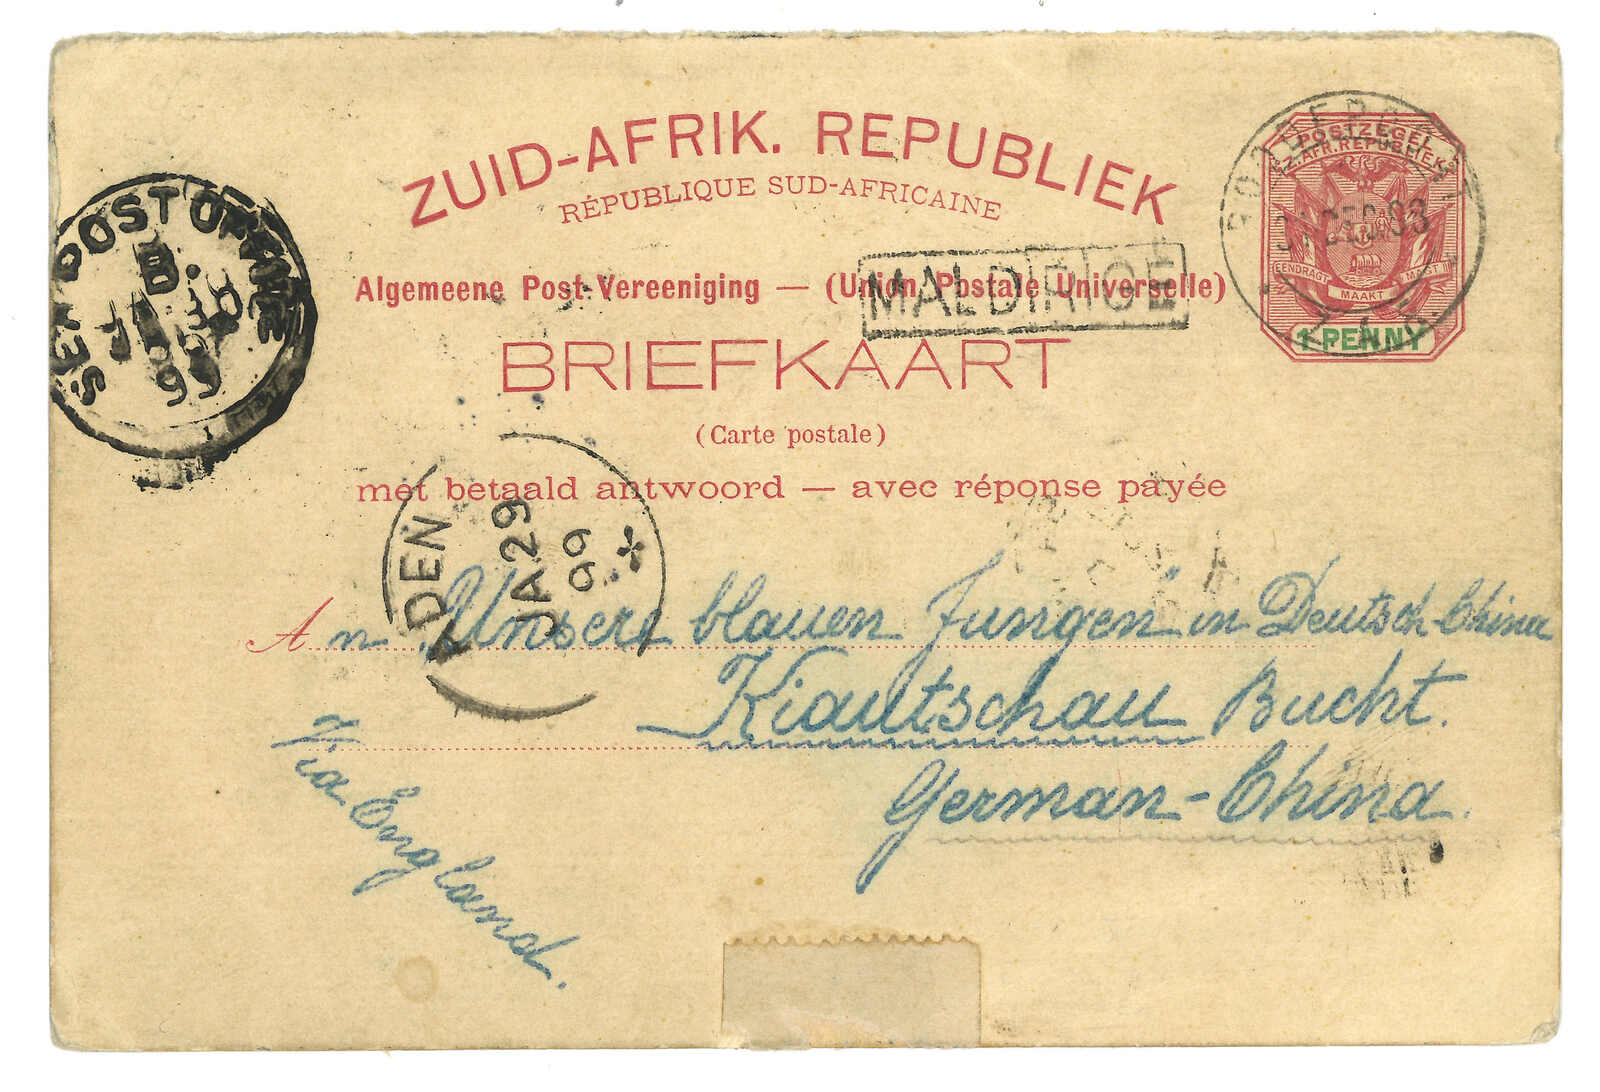 ZUID-AFRIK. REPUBLIEK
RÉPUBLIQUE SUD-AFRICAINE
Algemeene Post-Vereeniging — (Union Postale Universelle)
MALDIRIGÉ
BRIEFKAART
(Carte postale)
met betaald antwoord — avec réponse payée
POSTZEGEL
Z. AFR. REPUBLIEK
EENDRAGT MAAKT MAGT
1 PENNY
SEA POST OFFICE
B
ADEN
JA 29
99
An „Unsere blauen Jungen" in Deutsch-China
Kiautschau Bucht.
German-China.
Via England.